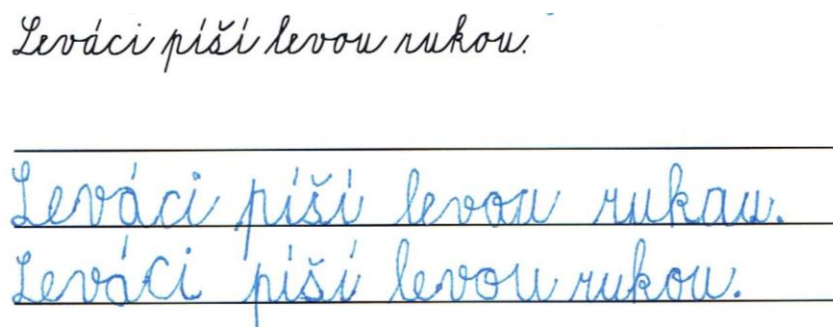 Leváci píší levou rukou.
Leváci píší levou rukou.
Leváci píší levou rukou.